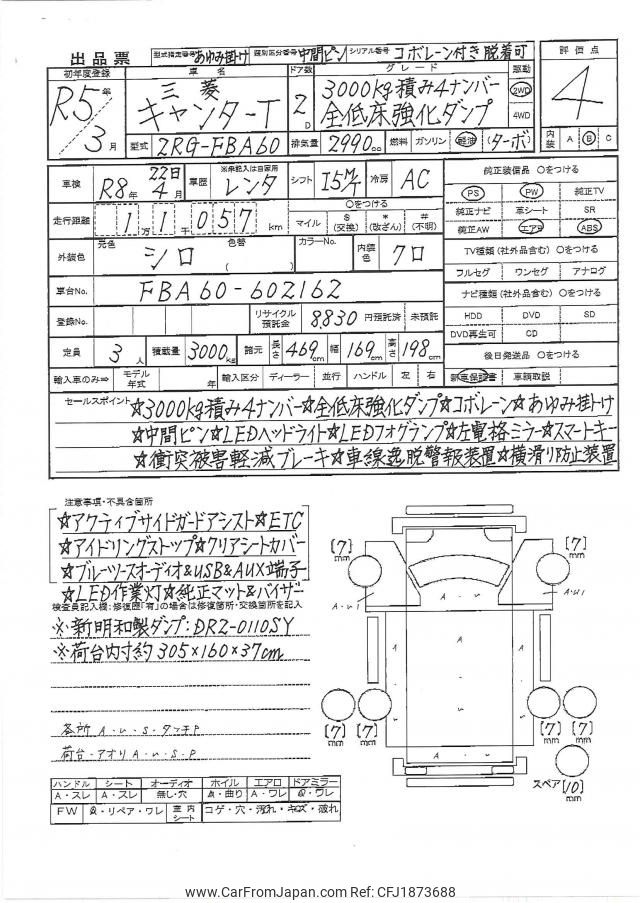 出品票 型式指定番号 あゆみ掛け 類別区分番号 中間ピン シリアル番号 コボレーン付き脱着可 評価点
初年度登録 車名 ドア数 グレード 駆動
R5年 三菱 3000kg積み4ナンバー 2WD 4
3月 キャンターT 2D 全低床強化ダンプ 4WD
型式 2RG-FBA60 排気量 2990cc 燃料 ガソリン 軽油 (ターボ) 内装 A B C
車検 R8年 22日 4月 車歴 ※未記入は自家用 レンタ シフト I5M/T 冷房 AC 純正装備品 ○をつける
PS PW 純正TV
走行距離 1万1千057km ○をつける マイル $(交換) *(改ざん) #(不明) 純正ナビ 革シート SR
純正AW エアB ABS
外装色 元色 シロ 色替 ( ) カラーNo. 内装色 クロ TV種類(社外品含む) ○をつける
フルセグ ワンセグ アナログ
車台No. FBA60-602162 ナビ種類(社外品含む) ○をつける
登録No. リサイクル預託金 8,830 円預託済 未預託 HDD DVD SD
DVD再生可 CD
定員 3人 積載量 3000kg 諸元 長さ 469cm 幅 169cm 高さ 198cm 後日発送品 ○をつける
輸入車のみ⇒ モデル年式 年 輸入区分 ディーラー 並行 ハンドル 左 右 新車保証書 車輌取説
セールスポイント ☆3000kg積み4ナンバー☆全低床強化ダンプ☆コボレーン☆あゆみ掛け
☆中間ピン☆LEDヘッドライト☆LEDフォグランプ☆左電格ミラー☆スマートキー
☆衝突被害軽減ブレーキ☆車線逸脱警報装置☆横滑り防止装置
注意事項・不具合箇所
☆アクティブサイドガードアシスト☆ETC
☆アイドリングストップ☆クリアシートカバー
☆ブルーツースオーディオ&USB&AUX端子
☆LED作業灯☆純正マット&バイザー
検査員記入欄:修復歴「有」の場合は修復箇所・交換箇所を記入
※新明和製ダンプ:DRZ-0110SY
※荷台内寸約305×160×37cm
各所 A・U・S・タッチP
荷台・アオリ A・U・S・P
[7]mm [7]mm
A・U1 A・U1
A A A
A・U
[7]mm [7]mm [7]mm [7]mm
スペア [10]mm
ハンドル シート オーディオ ホイル エアロ ドアミラー
A・スレ A・スレ 無し・穴 A・曲り A・ワレ A・ワレ
FW A・リペア・ワレ 室内シート コゲ・穴・汚れ・キズ・破れ
www.CarFromJapan.com Ref: CFJ1873688